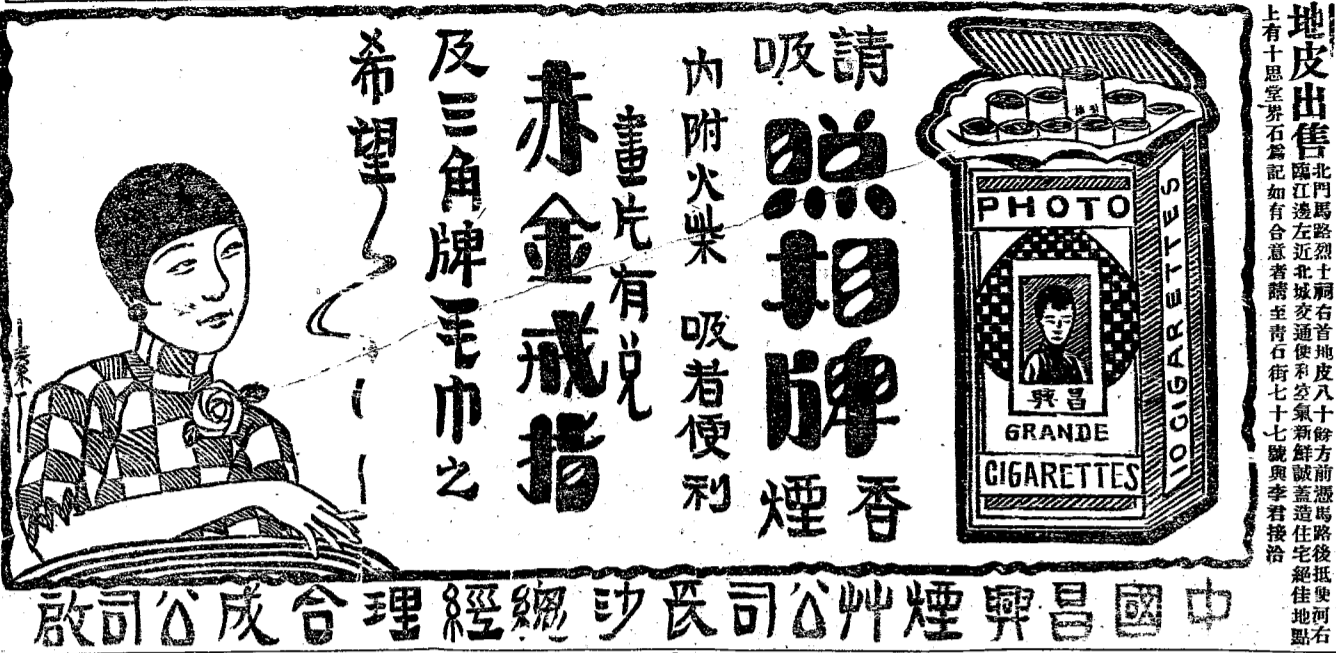 地皮出售
北門馬路烈士祠右首地皮八十餘方前憑馬路後抵便河右
臨江邊左近北城交通便利空氣新鮮誠蓋造住宅絕佳地點
上有十思堂界石爲記如有合意者請至青石街七十七號與李君接洽
PHOTO
昌興
GRANDE
CIGARETTES
10 CIGARETTES
請吸
照相牌
香煙
內附火柴 吸着便利
畫片有兌
赤金戒指
及三角牌毛巾之
希望
中國昌興煙艸公司長沙總經理合成公司啟